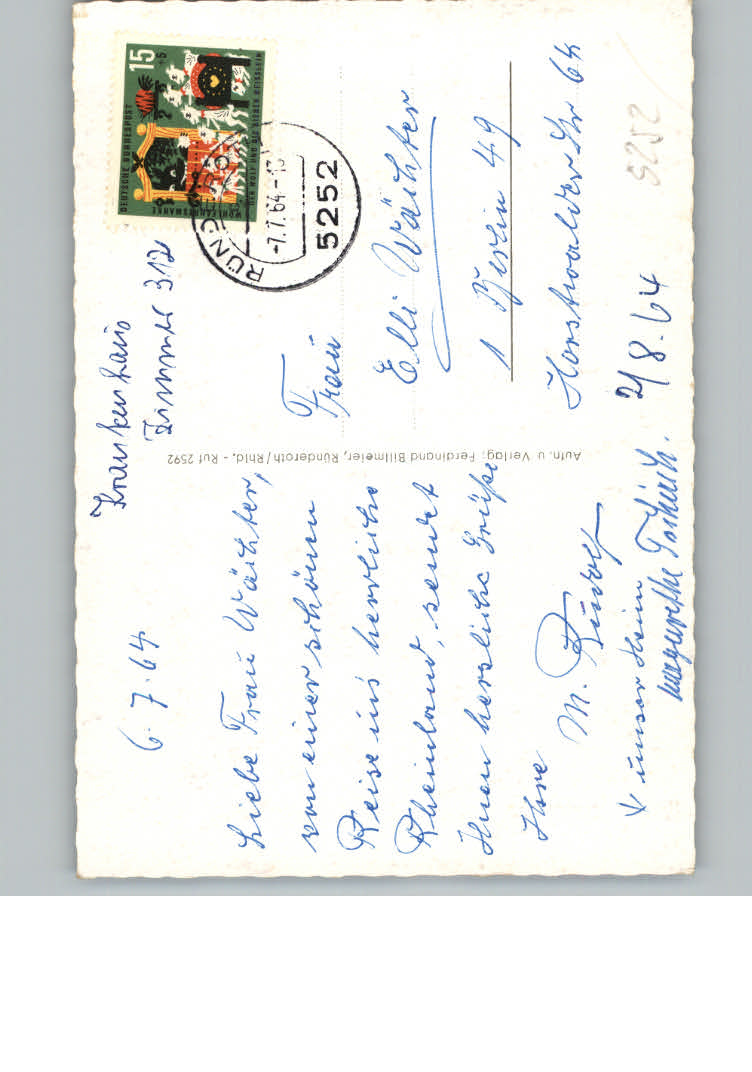 6.7.64
Liebe Frau Wächter,
von einer schönen
Reise ins herrliche
Rheinland, sendet
Ihnen herzliche Grüße
Ihre
M. Rudolf
unser Heim
Margarethe
Krankenhaus
Zimmer 312
DEUTSCHE BUNDESPOST
15
+5
WOHLFAHRTSMARKE
DER WOLF UND DIE SIEBEN GEISSLEIN
RÜNDEROTH
-7.7.64-13
5252
Frau
Elli Wächter
1 Berlin 49
Horstwalder Str 64
2/8.64
5252
Aufn. u. Verlag: Ferdinand Billmeier, Ründeroth/Rhld. - Ruf 2592